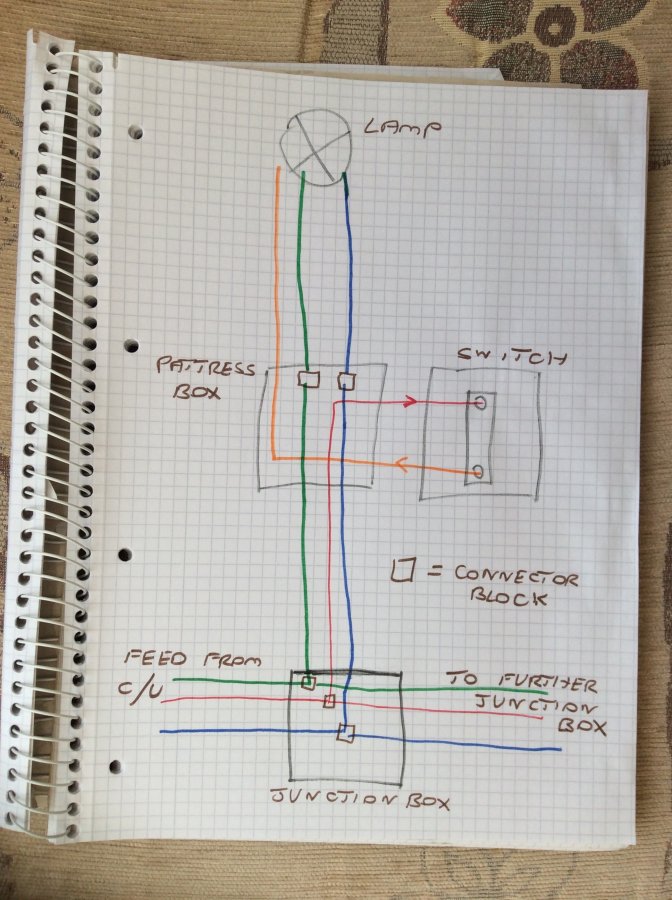 LAMP
PATTRESS
BOX
SWITCH
= CONNECTOR
BLOCK
FEED FROM
C/U
TO FURTHER
JUNCTION
BOX
JUNCTION BOX